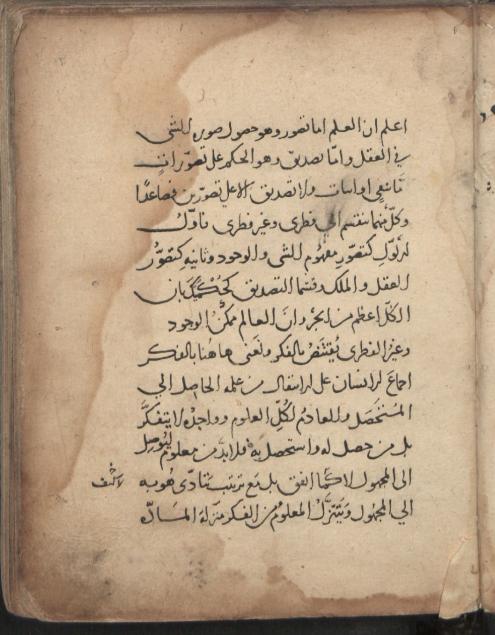 اعلم ان العلم اما تصور وهو حصول صورة للشي
في العقل واما تصديق وهو الحكم على تصورات
بنفي او اثبات ولا تصديق الا على تصورين فصاعدا
وكل منهما ينقسم الي فطري وغير فطري فاول
الاول كتصور مفهوم للشي والوجود وثانيه كتصور
العقل والملك وقسما التصديق كحكمك بان
الكل اعظم من الجزء وان العالم ممكن الوجود
وغير الفطري يقتنص بالفكر ونعني هاهنا بالفكر
اجماع الانسان على الانتقال من علمه الحاصل الي
المستحصل والعادم لكل العلوم وواجده لا يتفكر
بل من حصل له واستحصل به فلا بد من معلوم ليوصل
الي المجهول لا كما اتفق بل مع ترتيب تتادى هو به
الي المجهول ويتنزل المعلوم من الفكر منزلة المادة